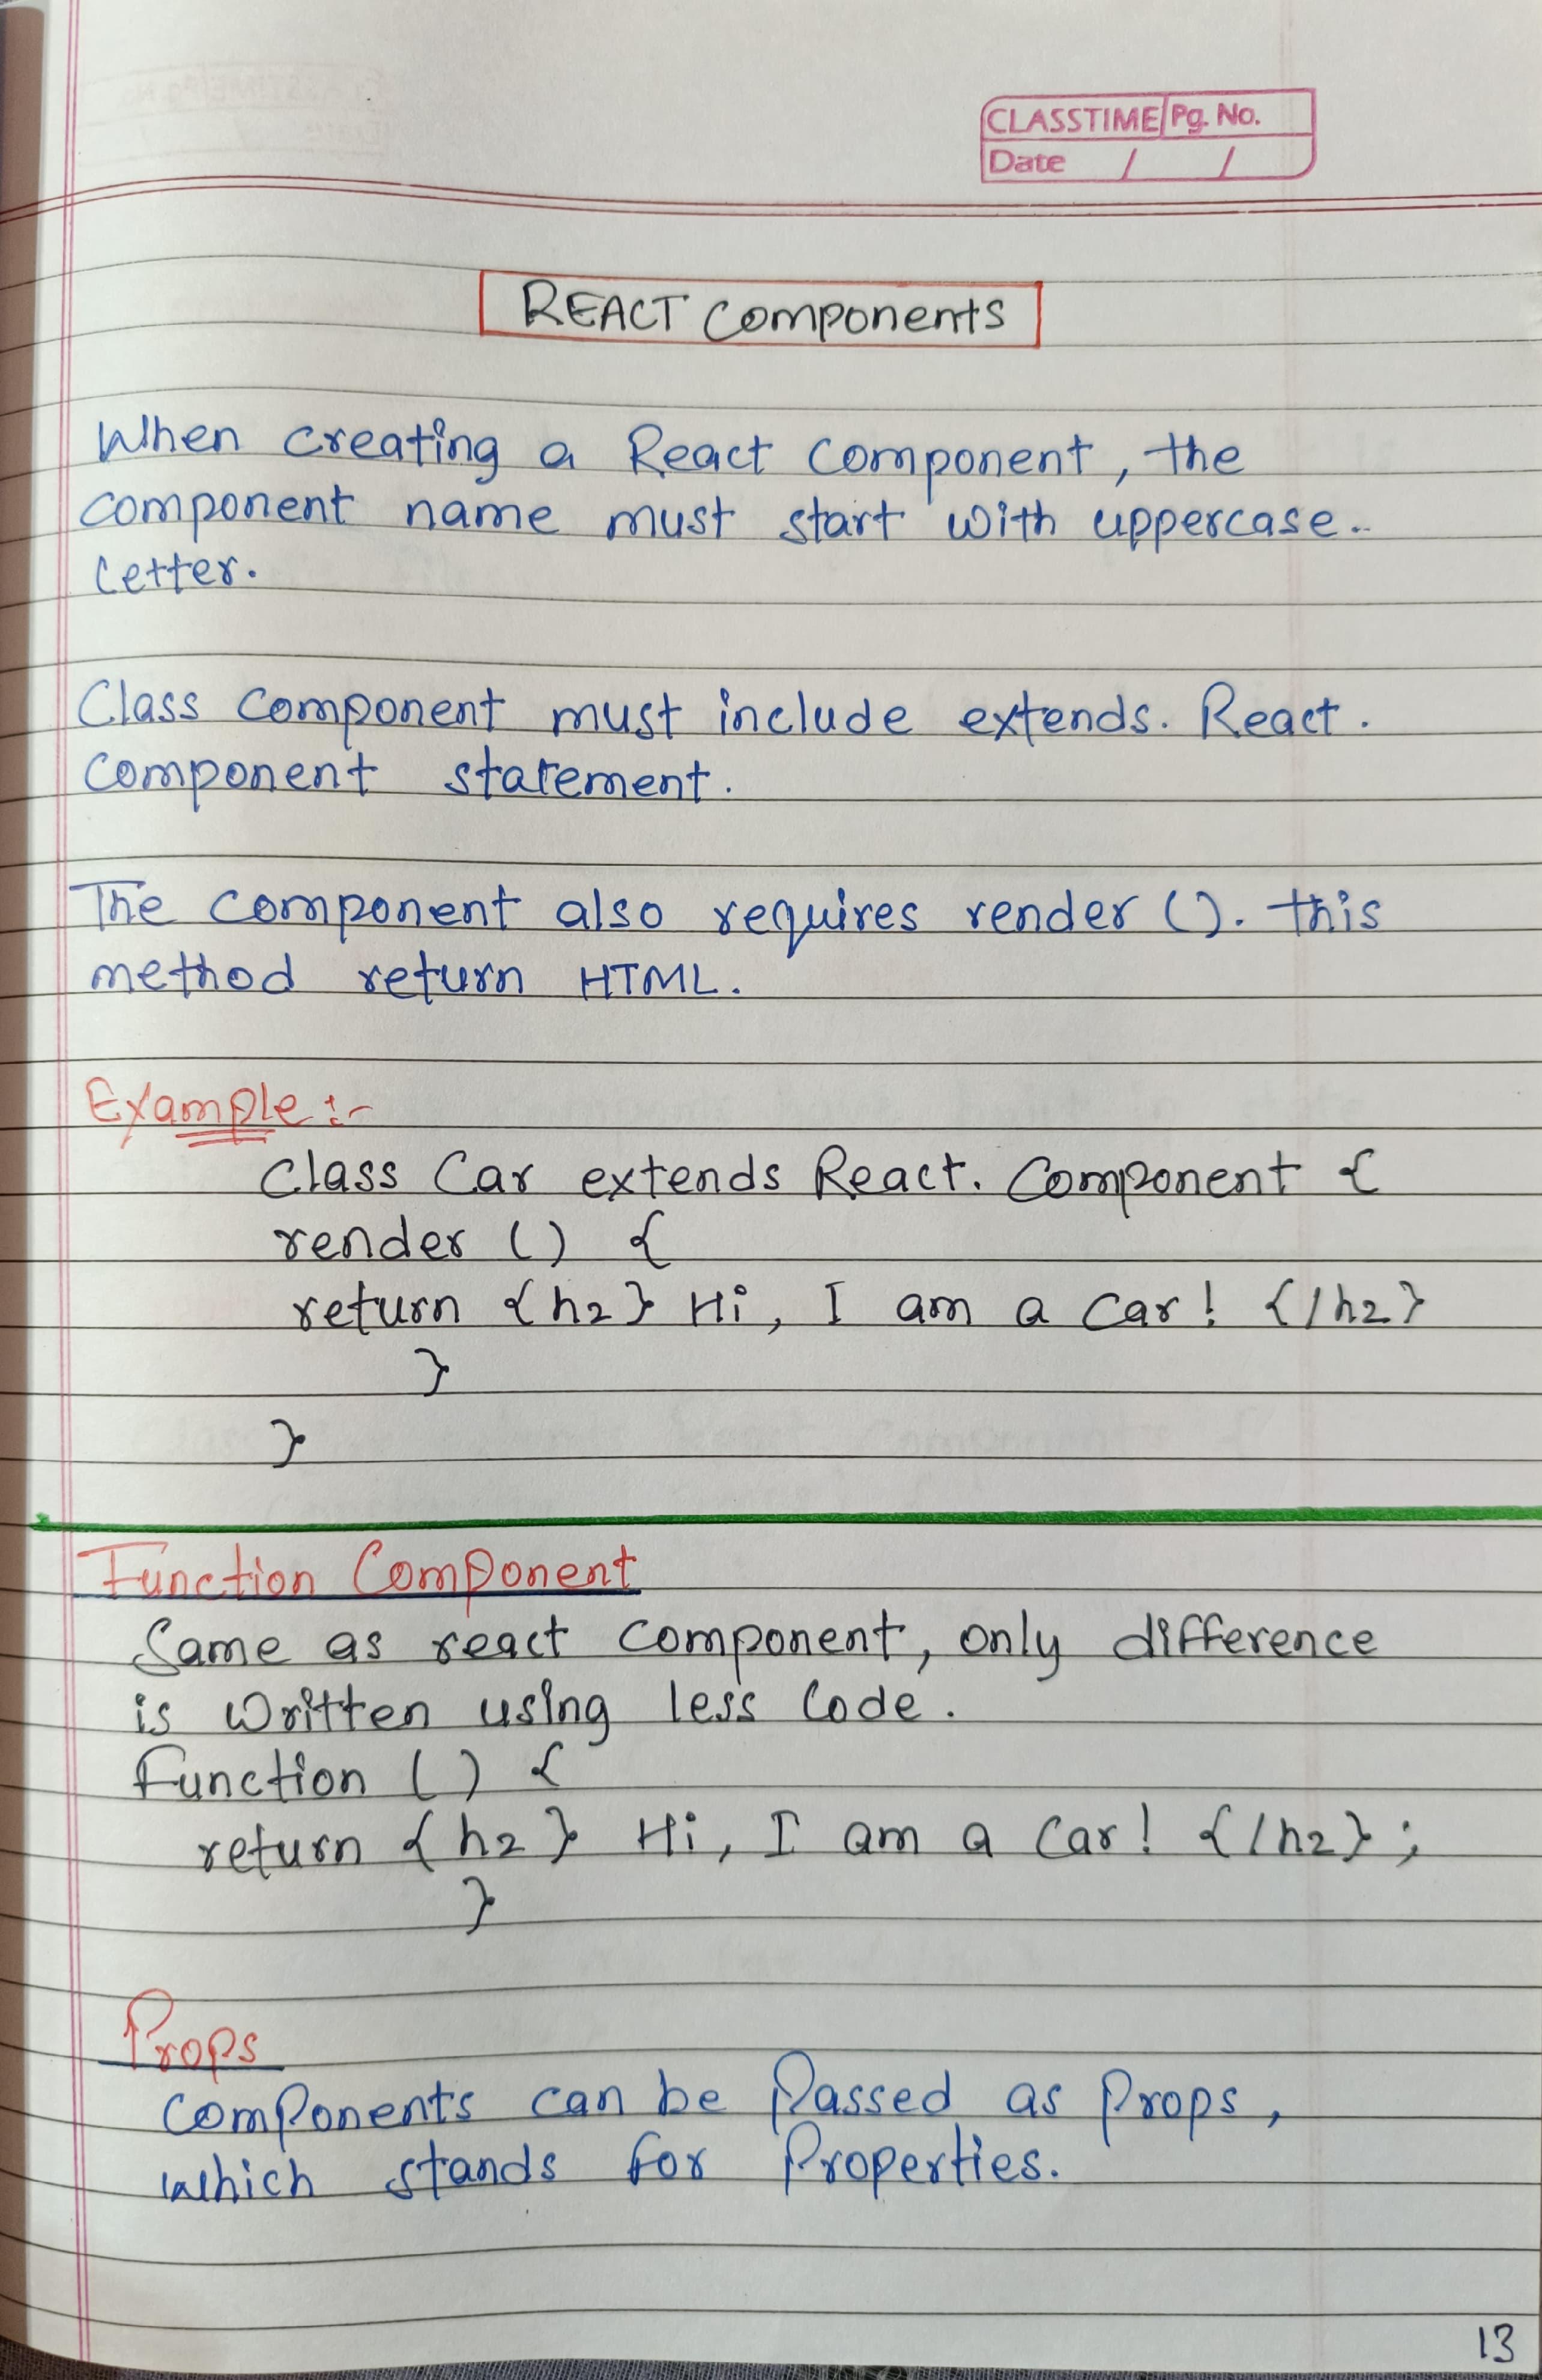 CLASSTIME Pg. No.
Date / /
REACT Components
When creating a React Component, the
component name must start with uppercase..
letter.
Class Component must include extends. React.
Component statement.
The component also requires render (). this
method return HTML.
Example :-
Class Car extends React. Component {
render () {
return {h2} Hi, I am a Car! {/h2}
}
}
Function Component
Same as react component, only difference
is written using less Code.
Function () {
return {h2} Hi, I am a Car! {/h2};
}
Props
Components can be Passed as Props,
which stands for Properties.
13